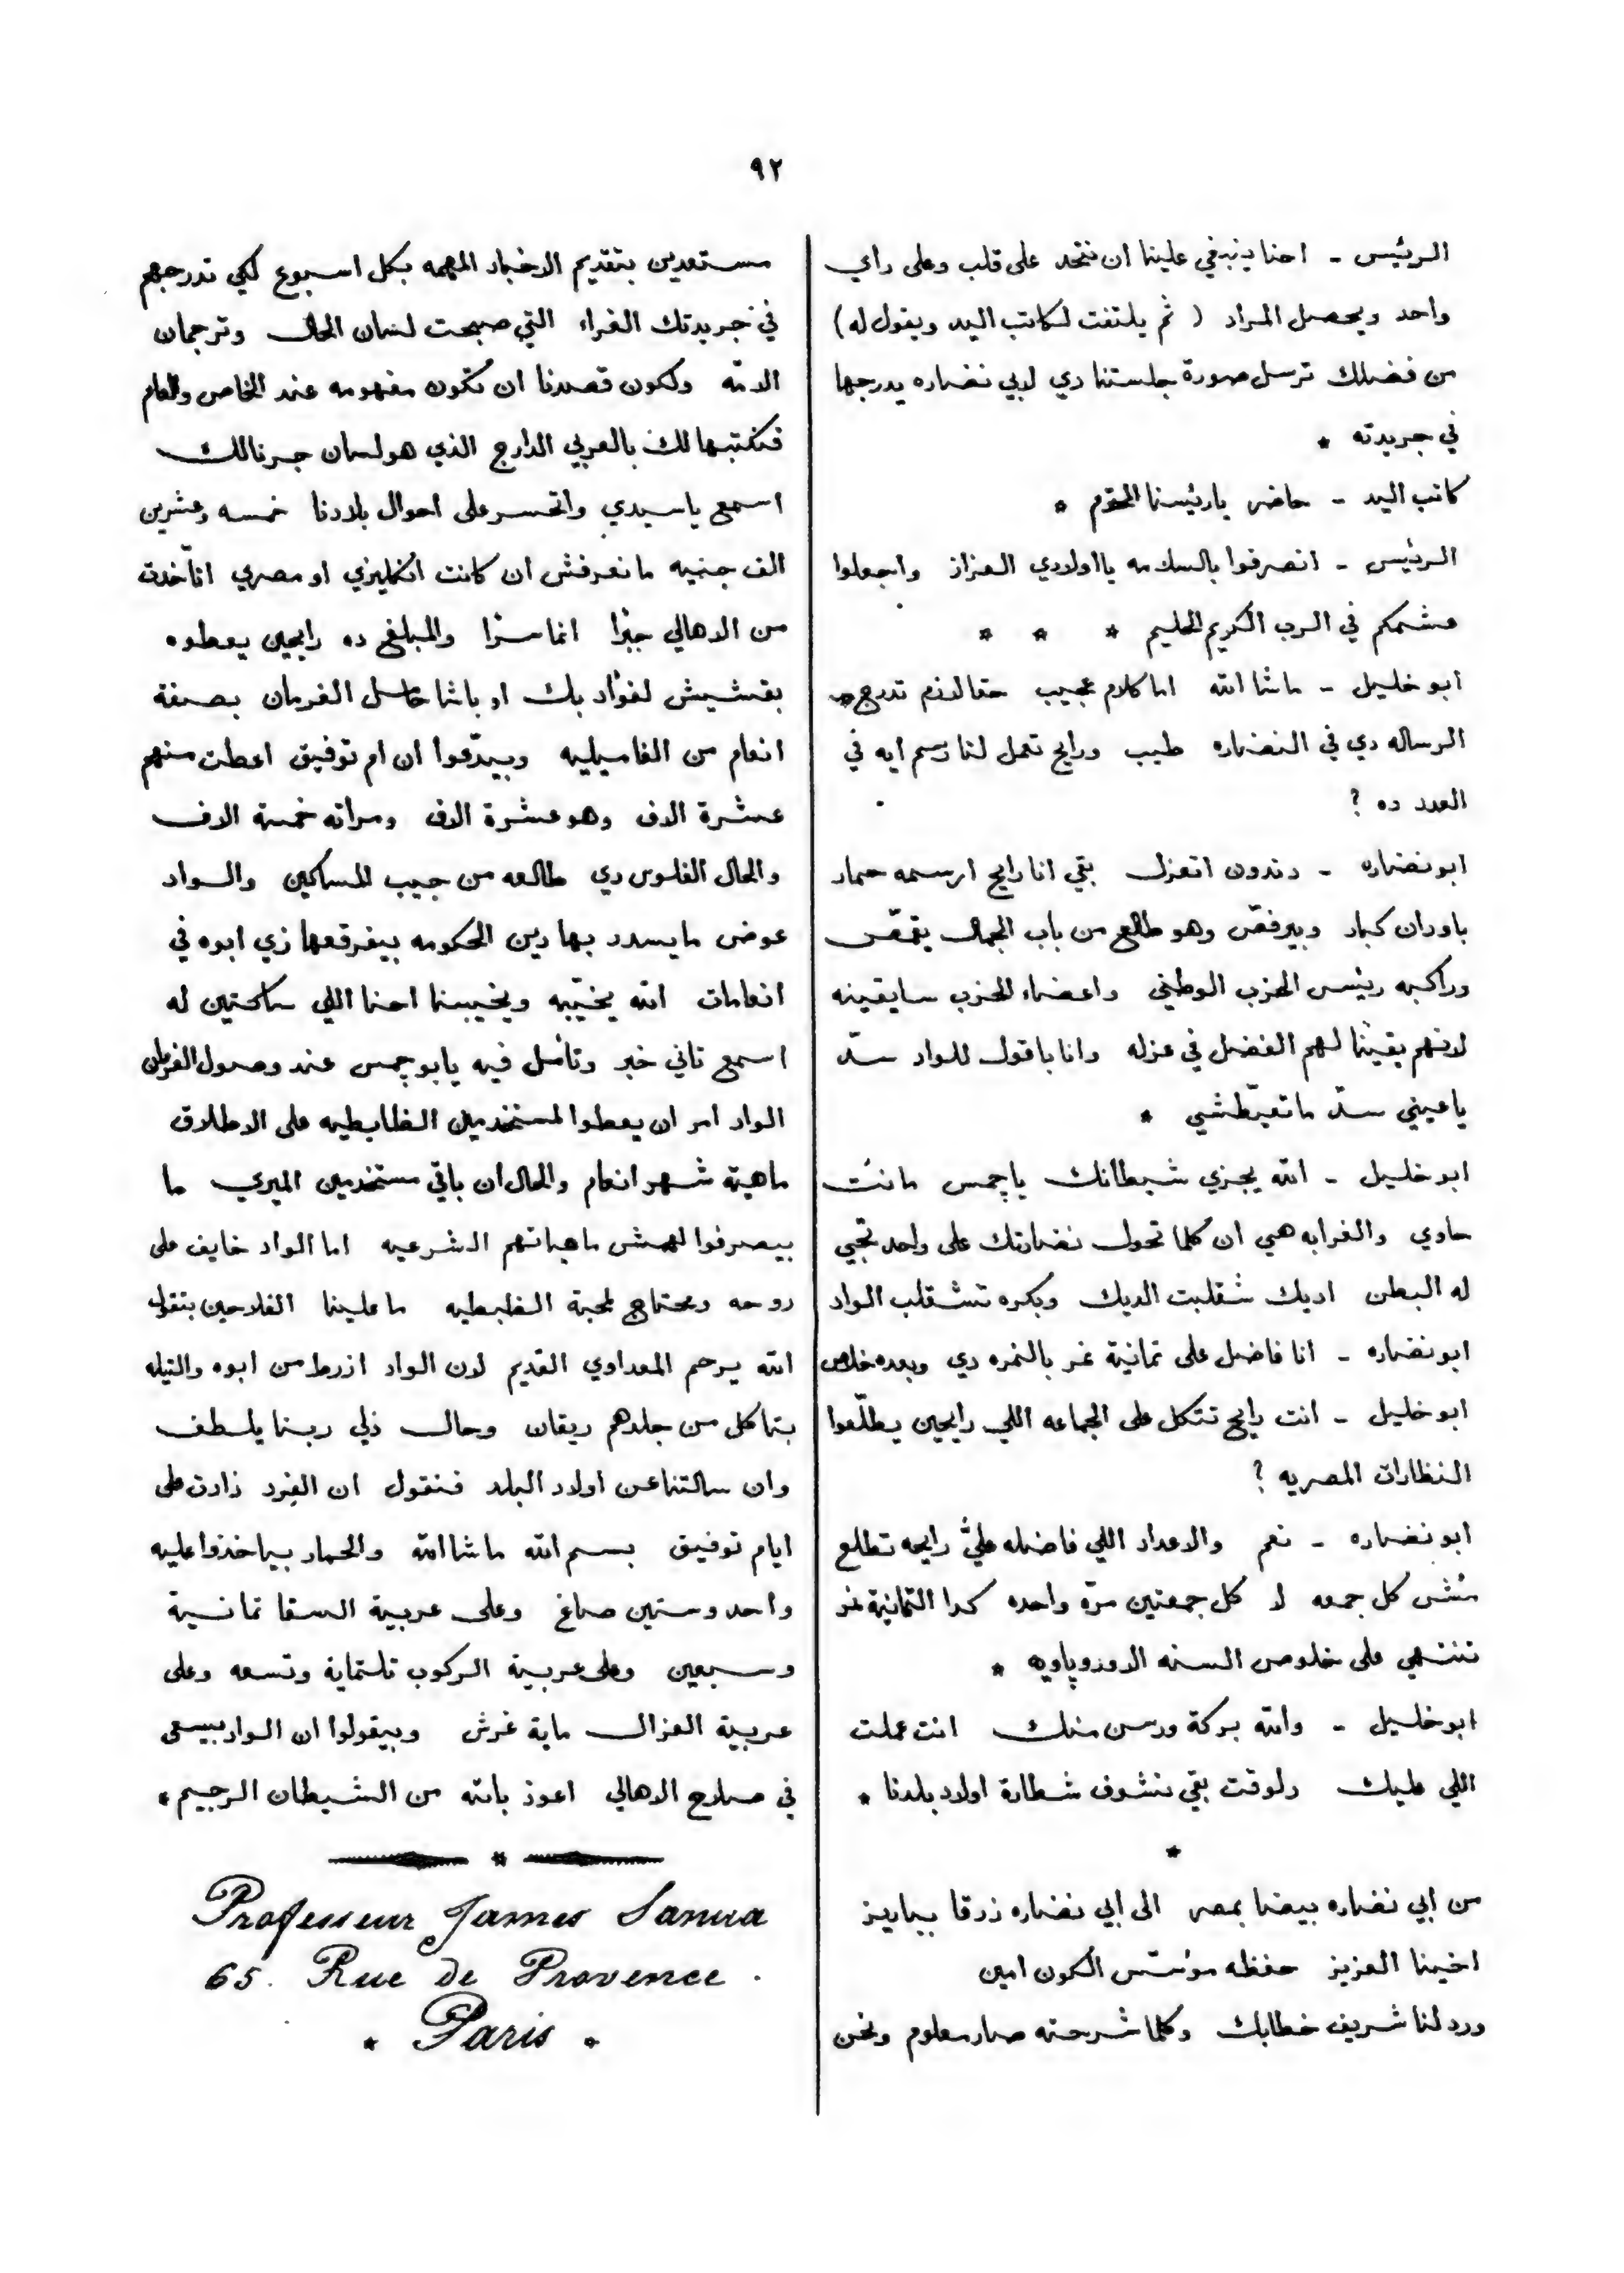 ٩٢
الرئيس - احنا ينبغي علينا ان نتحد على قلب وعلى راي
واحد ويحصل المراد ( ثم يلتفت لكاتب اليد ويقول له )
من فضلك ترسل صورة جلستنا دي لابي نضاره يدرجها
في جريدته *
كاتب اليد - حاضر يا رئيسنا المحترم *
الرئيس - انصرفوا بالسلامه يا اولادي العزاز واجعلوا
عشمكم في الرب الكريم الحليم * * *
ابو خليل - ماشا الله اما كلام عجيب حقا لازم تدرج
الرساله دي في النضاره طيب ورايح تعمل لنا رسم ايه في
العدد ده ?
ابو نضاره - دندون اتعزل بقي انا رايح ارسمه حمار
باودان كبار وبيرفّص وهو طالع من باب الجمال يقمّص
وراكبه رئيس الحزب الوطني واعضاء الحزب سايقينه
لانهم بقينا لهم الفضل في عزله وانا باقول للواد سدّ
يا عيني سدّ ما تعيّطشي *
ابو خليل - الله يجزي شيطانك يا چمس مانت
حاوي والغرابه هي ان كلما تحول نضارتك على واحد تجي
له البطن اديك شقلبت الديك وبكره تشقلب الواد
ابو نضاره - انا فاضل على تمانية نمر بالنمره دي وبعده خلاص
ابو خليل - انت رايح تتكل على الجماعه اللي رايحين يطلّعوا
النظارات المصريه ?
ابو نضاره - نعم والاعداد اللي فاضله عليَّ رايحه تطلع
مُش كل جمعه لا كل جمعتين مرّه واحده كدا التمانية نمر
تنتهي على خلوص السنه الاوروپاويه *
ابو خليل - والله بركة ورسن منك انت عملت
اللي عليك دلوقت بقي نشوف شطارة اولاد بلدنا *
*
من ابي نضاره بيضا بمصر الى ابي نضاره زرقا بباريز
اخينا العزيز حفظه مؤسّس الكون امين
ورد لنا شريف خطابك وكلما شرحته صار معلوم ونحن
مستعدين بتقديم الاخبار المهمه بكل اسبوع لكي تدرجهم
في جريدتك الغراء التي صبحت لسان الحال وترجمان
الامّه ولكون قصدنا ان تكون مفهومه عند الخاص والعام
فنكتبها لك بالعربي الدارج الذي هو لسان جرنالك
اسمع يا سيدي واتحسر على احوال بلادنا خمسه وعشرين
الف جنيه ما نعرفش ان كانت انكليزي او مصري اتاّخدت
من الاهالي جبرًا انما سرًا والمبلغ ده رايحين يعطوه
بقشيش لفؤاد بك او باشا حامل الفرمان بصفة
انعام من الفاميليه وبيدّعوا ان ام توفيق اعطت منهم
عشرة الاف وهو عشرة الاف ومراته خمسة الاف
والحال الفلوس دي طالعه من جيب المساكين والواد
عوض ما يسدد بها دين الحكومه بيفرقعها زي ابوه في
انعامات الله يخيّبه ويخيبنا احنا اللي ساكتين له
اسمع تاني خبر وتأمل فيه يا بو چمس عند وصول الفرمان
الواد امر ان يعطوا لمستخدمين الظابطيه على الاطلاق
ماهية شهر انعام والحال ان باقي مستخدمين الميري ما
بيصرفوا لهمش ماهياتهم الشرعيه اما الواد خايف على
روحه ومحتاج لمحبة الظبطيه ما علينا الفلاحين بتقول
الله يرحم المعداوي القديم لان الواد ازرط من ابوه والتيله
بتاكل من جلدهم ريقان وحال ذلي ربنا يلطف
وان سالتنا عن اولاد البلد فنقول ان الفِرد زادت على
ايام توفيق بسم الله ماشا الله والحمار بياخذوا عليه
واحد وستين صاغ وعلى عربية السقا تمانية
وسبعين وعلى عربية الركوب تلتماية وتسعه وعلى
عربية العزال ماية غرش وبيقولوا ان الواد بيسعى
في صلاح الاهالي اعوذ بالله من الشيطان الرجيم *
*
Professeur James Sanua
65. Rue de Provence.
* Paris *